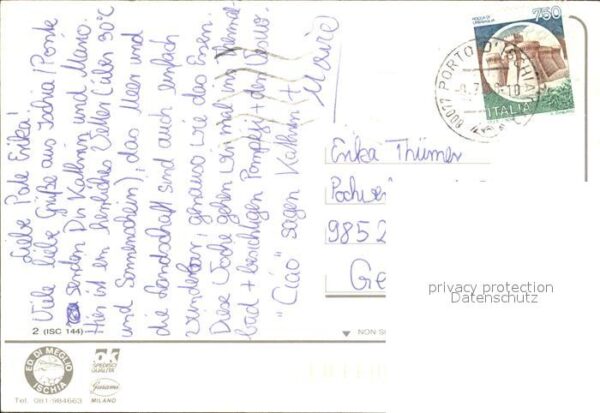 Liebe Pate Erika!
Viele liebe Grüße aus Ischia/Ponte
senden Dir Kathrin und Mario.
Hier ist ein herrliches Wetter (über 30°C
und Sonnenschein), das Meer und
die Landschaft sind auch einfach
wunderbar, genauso wie das Essen.
Diese Woche gehen wir mal ins Thermal-
bad + besichtigen Pompeji + den Vesuv.
"Ciao" sagen Kathrin +
Mario
750
ROCCA DI URBISAGLIA
ITALIA
80077 PORTO D'ISCHIA
Erika Thümer
9852
Ge
privacy protection
Datenschutz
2 (ISC 144)
NON S
ED. DI MEGLIO
ISCHIA
ok
SPEDIBILE
QUALITÀ
Garami
MILANO
Tel. 081-984663